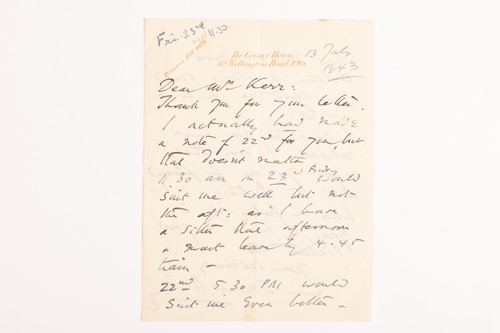 Fri 23rd 11.30.
Primrose Hill 4682
The Corner House,
62 Wellington Road, N.W.8.
13 July
1943
Dear Mr Kerr:
Thank you for your letter.
I actually had made
a note of 22nd for you, but
that doesn't matter
11.30 am on 23rd Friday would
suit me well but not
the aft: as I have
a sitter that afternoon
& must leave by 4.45
train –
22nd 5.30 PM would
suit me even better –